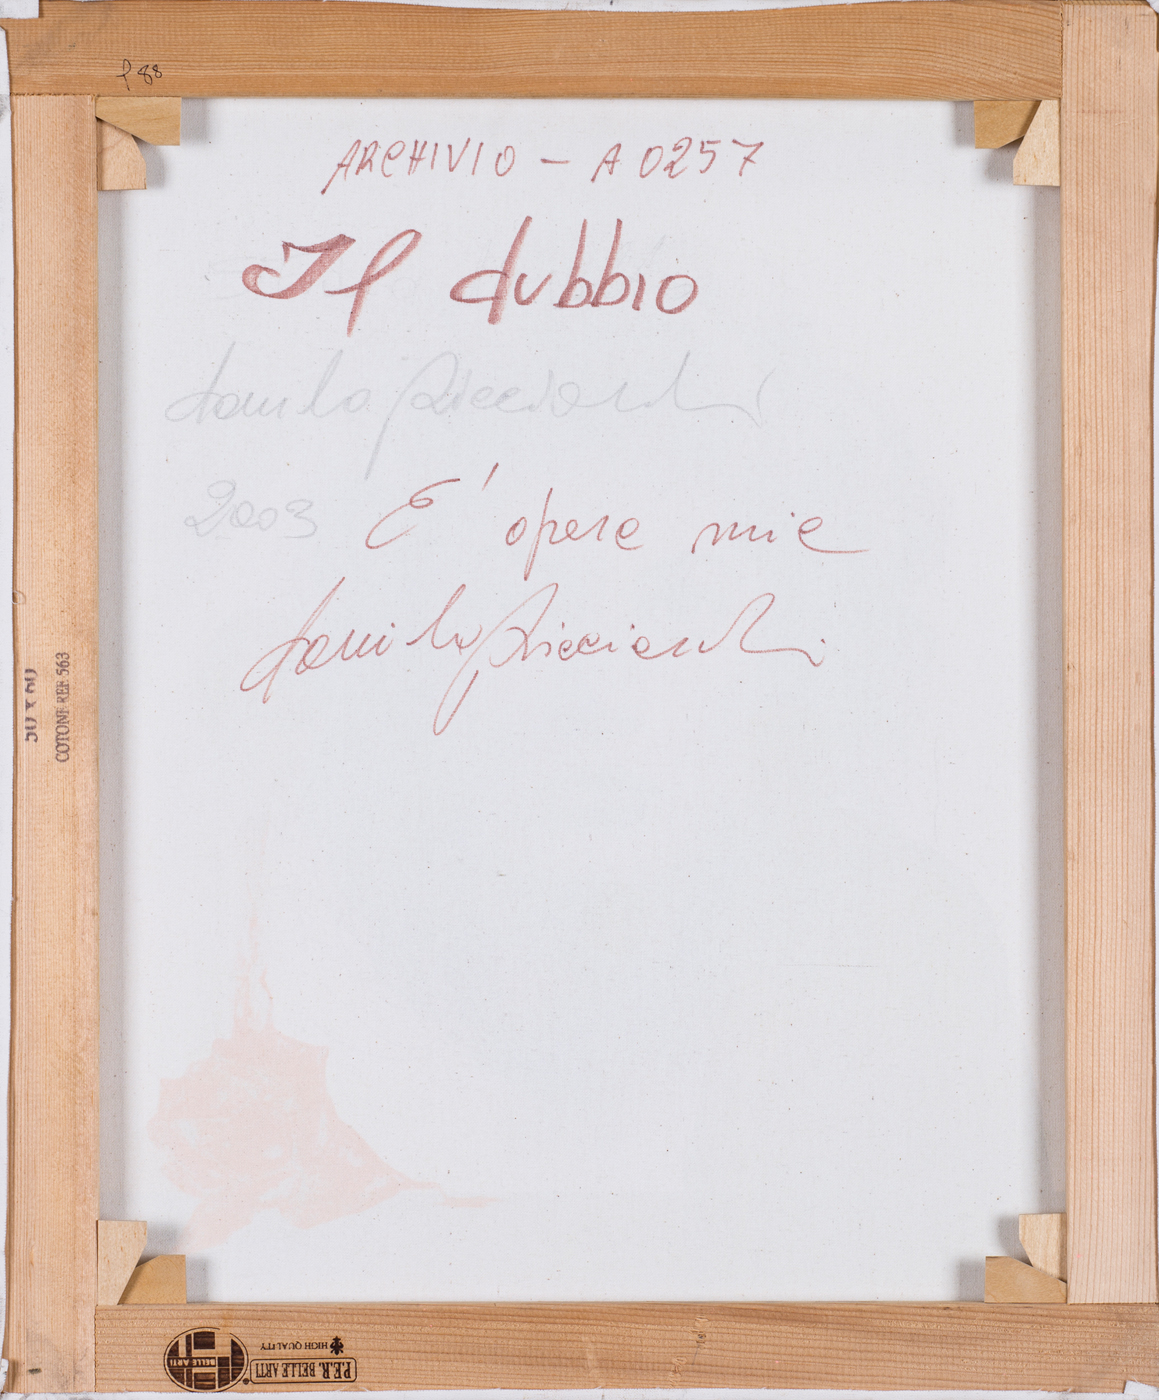 f 88
ARCHIVIO - A 0257
Il dubbio
danilo Ricciardi
2003
E' opera mia
danilo Ricciardi
50 x 60
COTONE REF 563
BELLE ARTI
HIGH QUALITY
P.E.R. BELLE ARTI